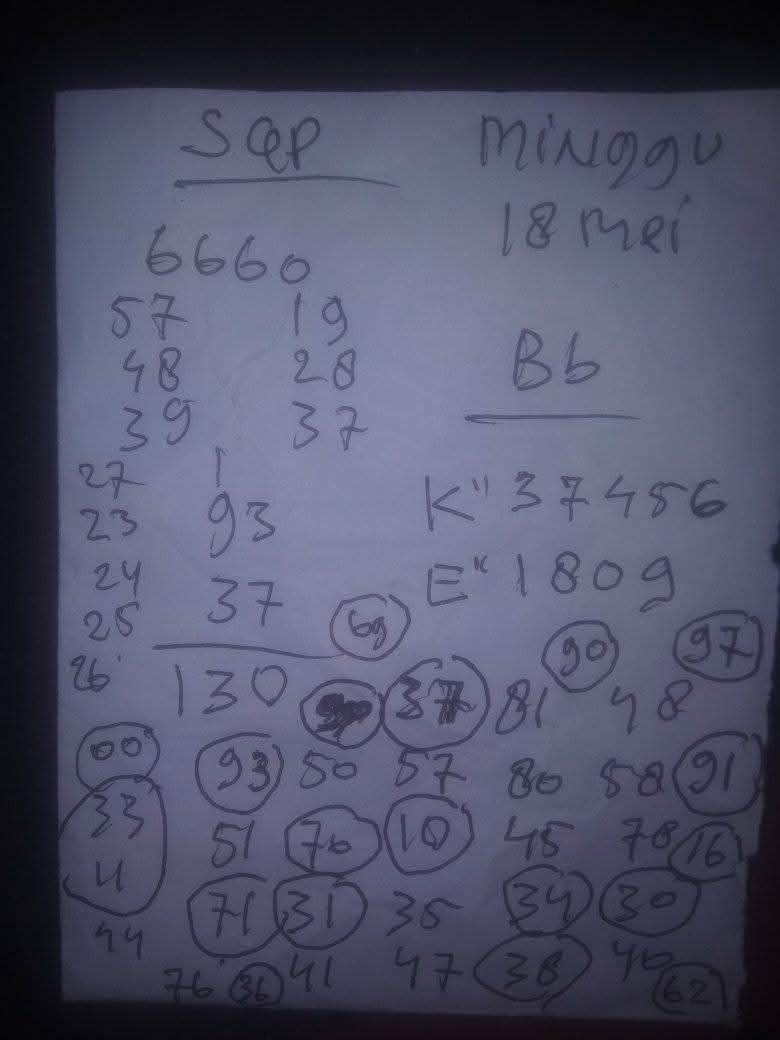 SGP MINggu
18 mei
6660
57 19
48 28 Bb
39 37
27 1
23 93 K" 37456
24 37 E" 1809
25 69 90 97
26 130 37 81 48
00 93 50 57 80 58 91
33 51 70 10 45 78 16
11 71 31 35 34 30
44 76 36 41 47 38 40 62